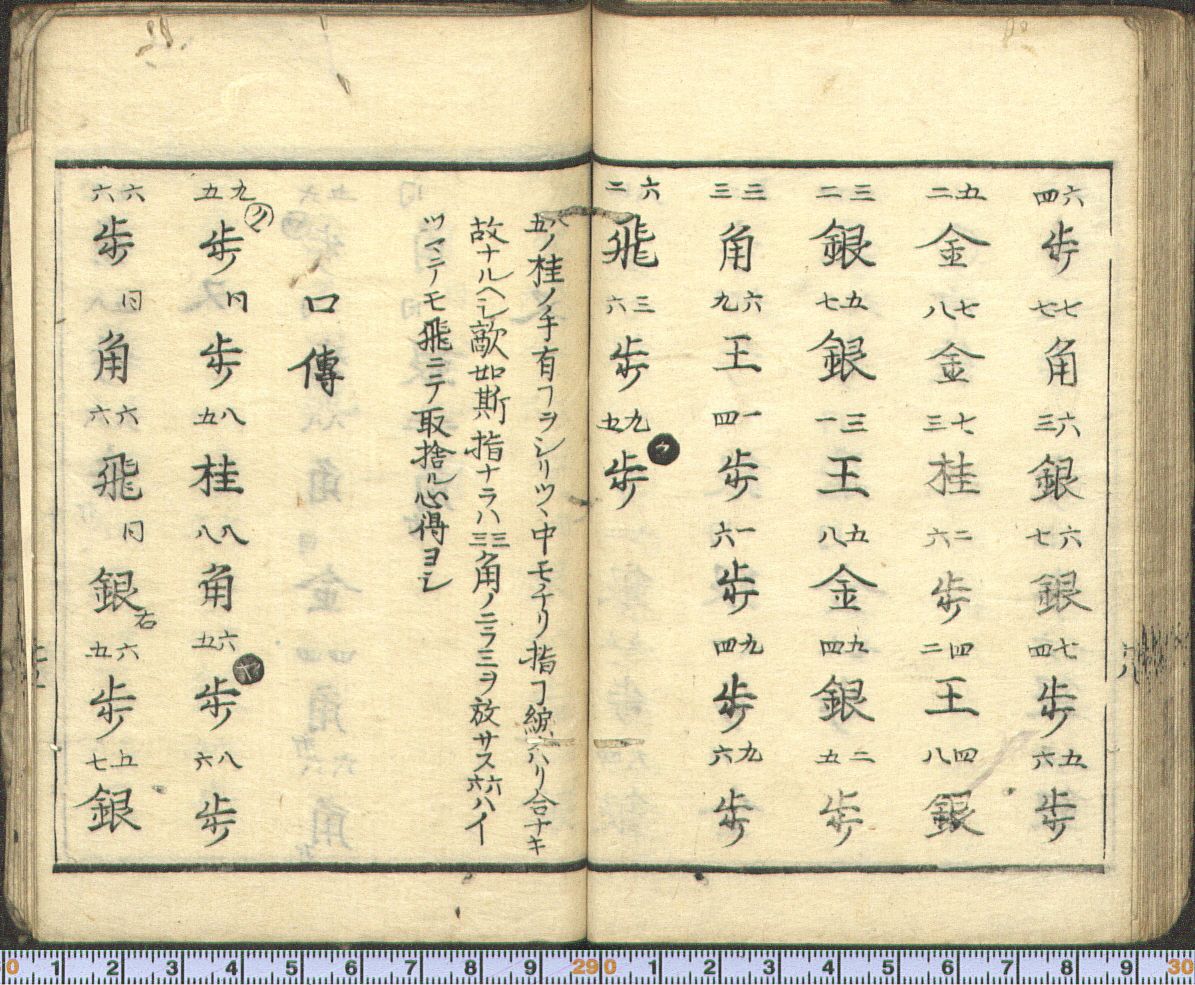 六四歩七七角六三銀六七銀七四歩五六歩
五二金七八金七三桂二六歩四二王四八銀
三二銀五七銀三一王五八金九四銀二五歩
三三角六九王一四歩一六歩九四歩九六歩
六二飛三六歩九五歩ウ
八五ノ桂ノ手有ヿヲシリツヽ中モチリ指ヿハリ合ナキ
故ナルヘシ敵如斯指ナラハ三三角ノニラミヲ放サス六六ハイ
ツマテモ飛ニテ取捨ル心得ヨシ
口傳
九五ノ歩同歩八五桂八八角六五歩八六歩
六六歩同角六六飛同銀右六五歩五七銀